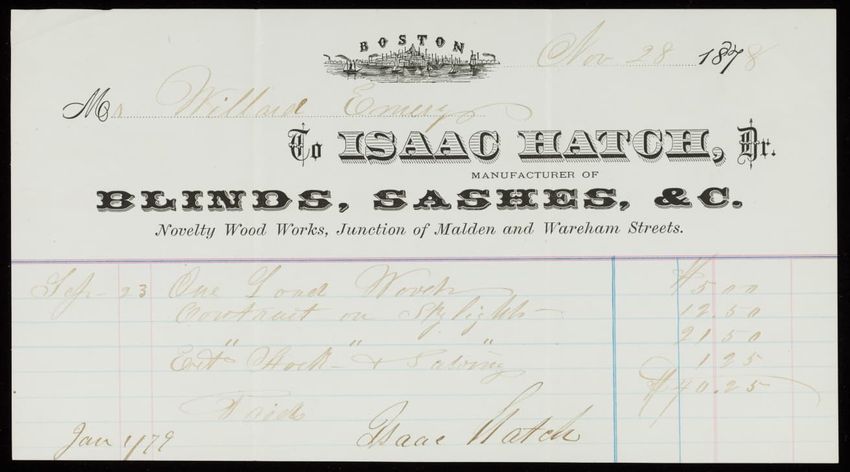 BOSTON
Nov 28 1878
Mr Willard Emery
To ISAAC HATCH, Dr.
MANUFACTURER OF
BLINDS, SASHES, &C.
Novelty Wood Works, Junction of Malden and Wareham Streets.
Sep 23 One Load Wood $5 00
Contract on Skylights 12 50
" " " 21 50
Ext Stock & Sawing 1 25
$40.25
Paid
Jan 1/79 Isaac Hatch